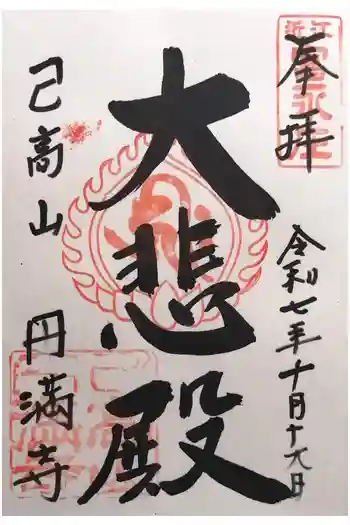 奉拝
令和七年十月十六日
大悲殿
己高山
円満寺
近江